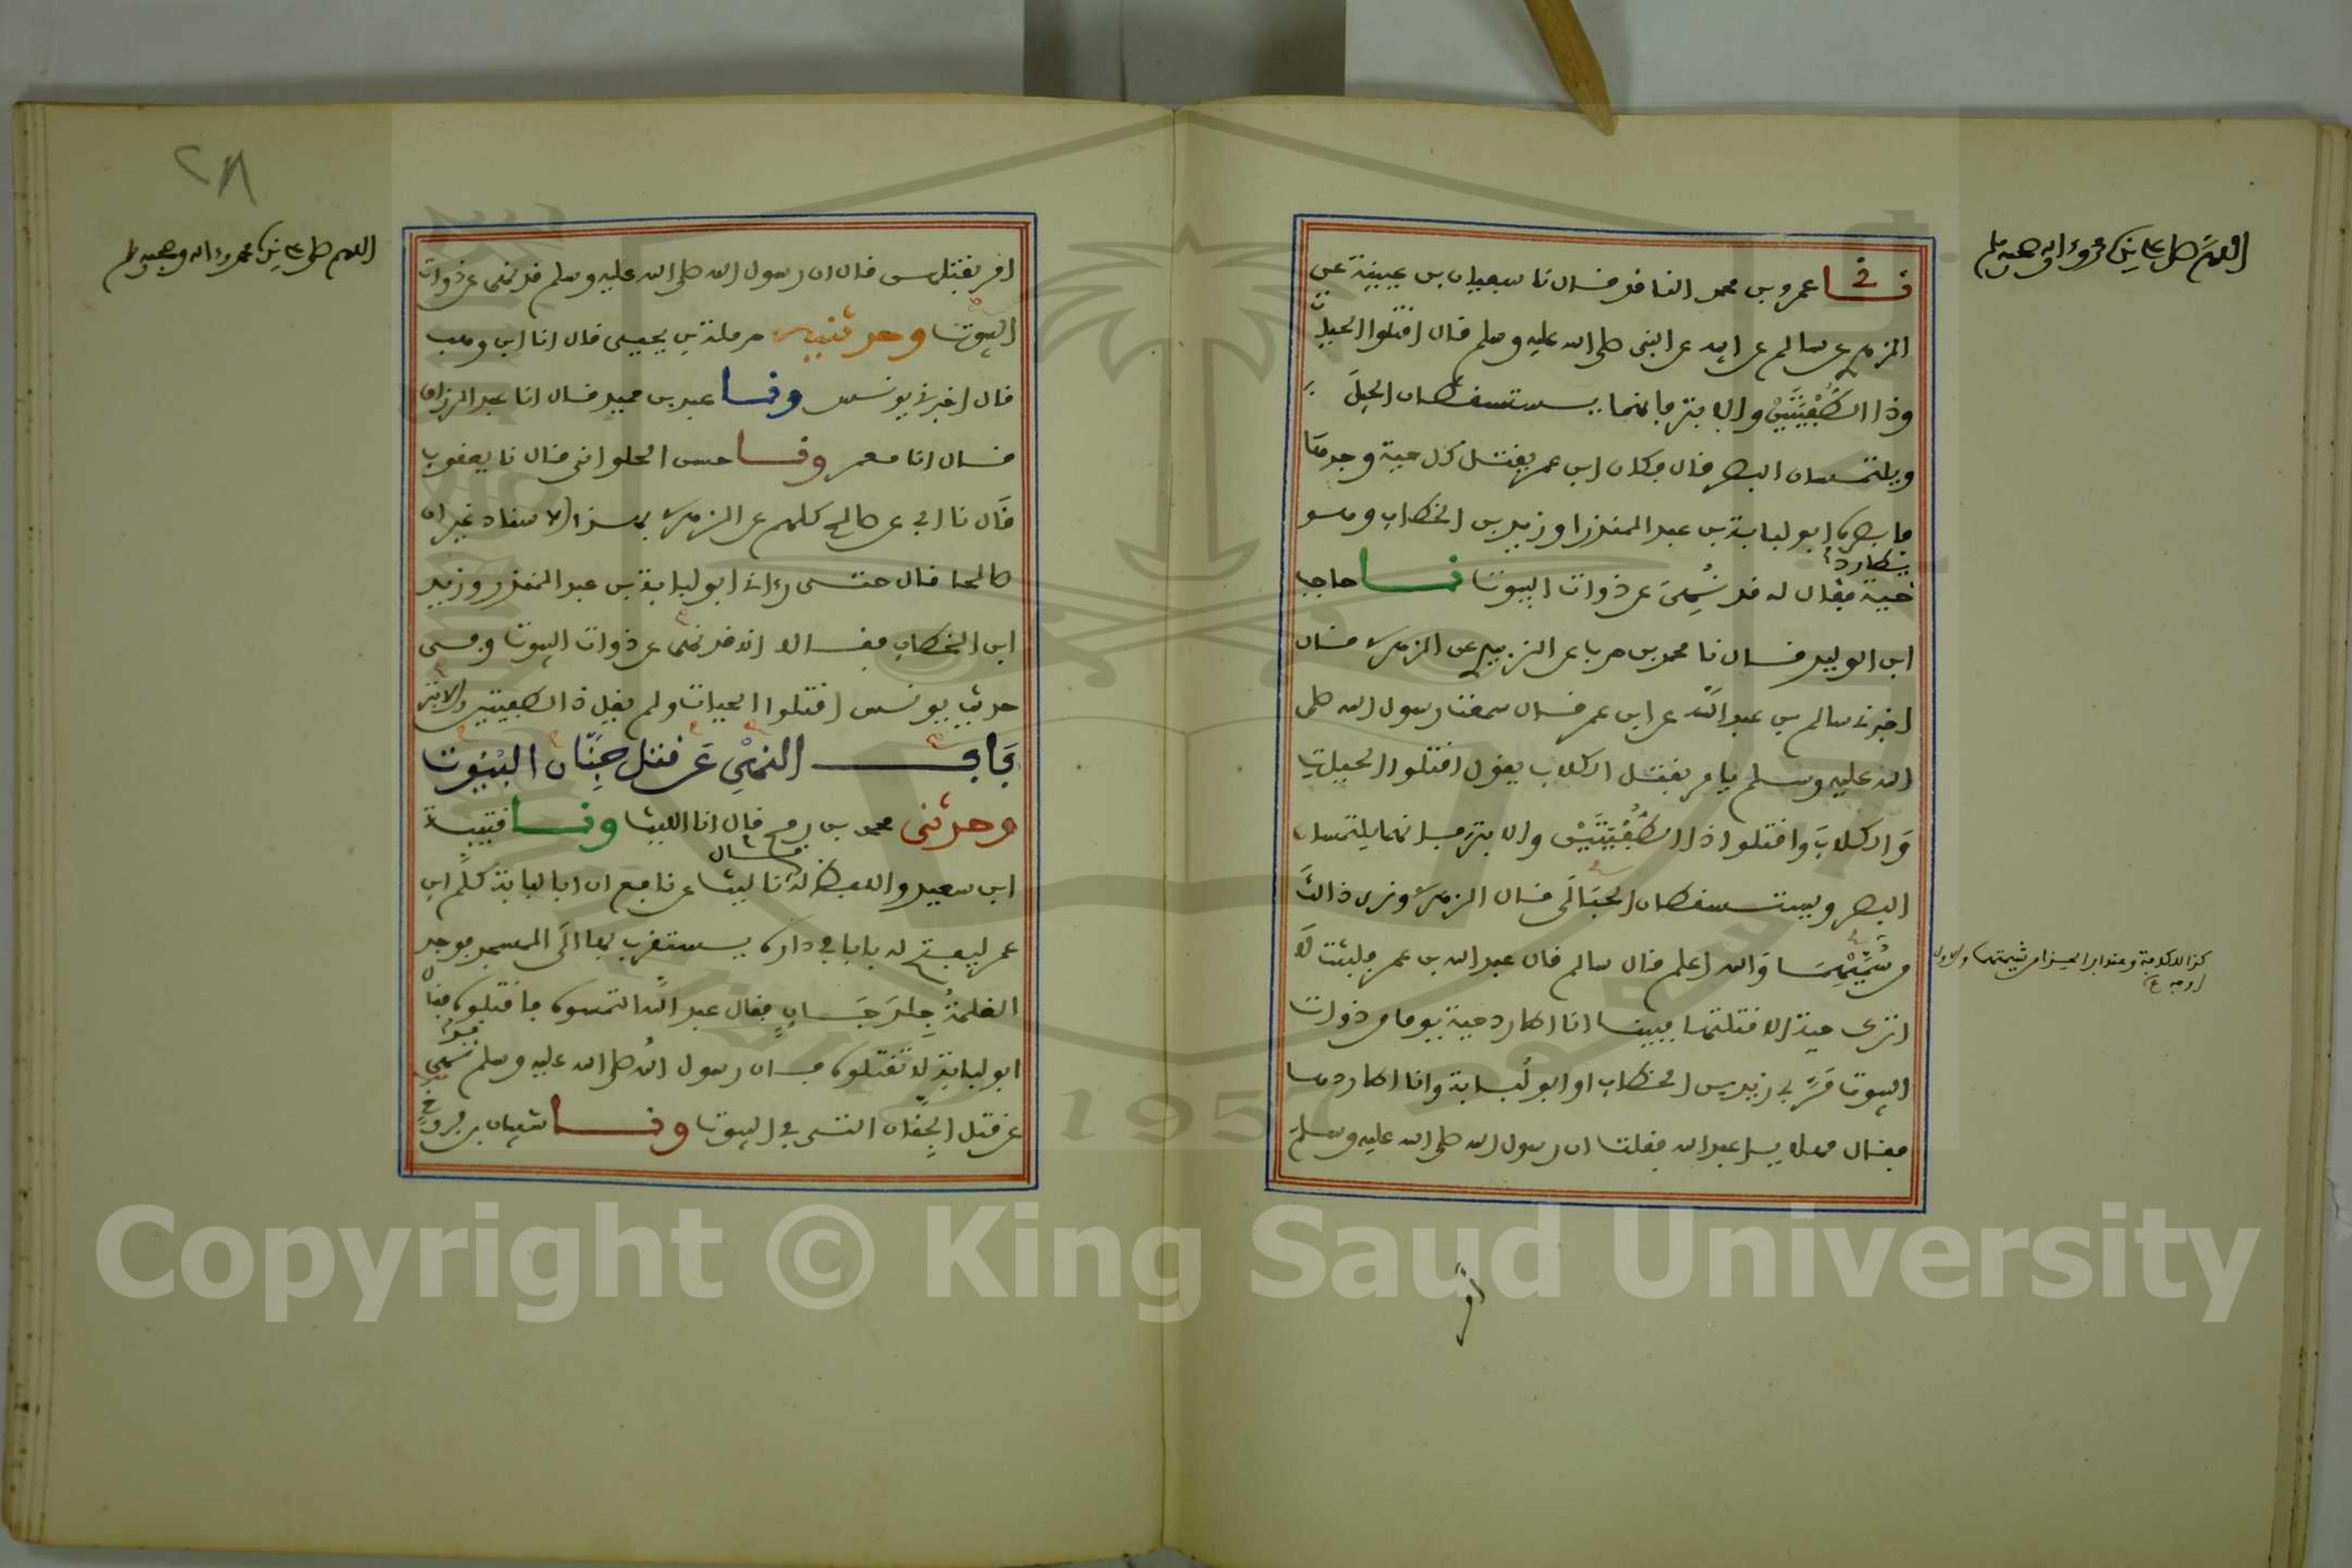 اللهم صل على سيدنا محمد وءاله وصحبه وسلم
نا عمرو بن محمد الناقد قال نا سفيان بن عيينة عن
الزهري عن سالم عن ابيه عن النبي صلى الله عليه وسلم قال اقتلوا الحيات
وذا الطُّفْيَتَيْنِ والابتر فانهما يستسقطان الحبل
ويلتمسان البصر قال فكان ابن عمر يقتل كل حية وجدها
فابصره ابو لبابة بن عبد المنذر او زيد بن الخطاب وهو
يطارد
حية فقال له قد نُهِيَ عن ذوات البيوت نا حاجب
ابن الوليد قال نا محمد بن حرب عن الزبيدي عن الزهري قال
اخبرني سالم بن عبد الله عن ابن عمر قال سمعت رسول الله صلى
الله عليه وسلم يامر بقتل الكلاب يقول اقتلوا الحيات
وَالكلابَ وَاقتلوا ذا الطُّفْيَتَيْنِ والابتر فانهما يلتمسان
البصر ويستسقطان الحَبَالَى قال الزهري ونرى ذالك
من سُمَّيْهِمَا وَالله اعلم قال سالم قال عبد الله بن عمر فلبثت لا
اترك حية الا قتلتها فبينا انا اطارد حية يوما من ذوات
البيوت مَرَّ بي زيد بن الخطاب او ابو لُبابة وانا اطاردها
فقال مهلا يا عبد الله فقلت ان رسول الله صلى الله عليه وسلم
امر
٢٨
اللهم صل على سيدنا محمد وءاله وصحبه وسلم
امر بقتلهن قال ان رسول الله صلى الله عليه وسلم قد نهى عن ذوات
البيوت وحدثنيه حرملة بن يحيى قال انا ابن وهب
قال اخبرني يونس ونا عبد بن حميد قال انا عبد الرزاق
قال انا معمر ونا حسن الحلواني قال نا يعقوب
قال نا ابي عن صالح كلهم عن الزهري بهذا الاسناد غير ان
صالحا قال حتى رءاني ابو لبابة بن عبد المنذر وزيد
ابن الخطاب فقالا انه قد نهى عن ذوات البيوت وفي
حديث يونس اقتلوا الحيات ولم يقل ذا الطفيتين والابتر
بَابُ النهْيِ عَن قتل جِنَّان البُيُوت
وحدثني محمد بن رمح قال انا الليث ونا قتيبة
ابن سعيد واللفظ له قال نا ليث عن نافع ان ابا لبابة كلَّم ابن
عمر ليفتح له بابا في داره يستقرب بها الَى المسجد فوجد
الغلمةُ جِلدَ جَانٍ فقال عبد الله التمسوه فاقتلوه فقال
ابو لبابة لا تقتلوه فان رسول الله صلى الله عليه وسلم نهى
عن قتل الجِنَّان التي في البيوت ونا شيبان بن فروخ
Copyright © King Saud University
1957